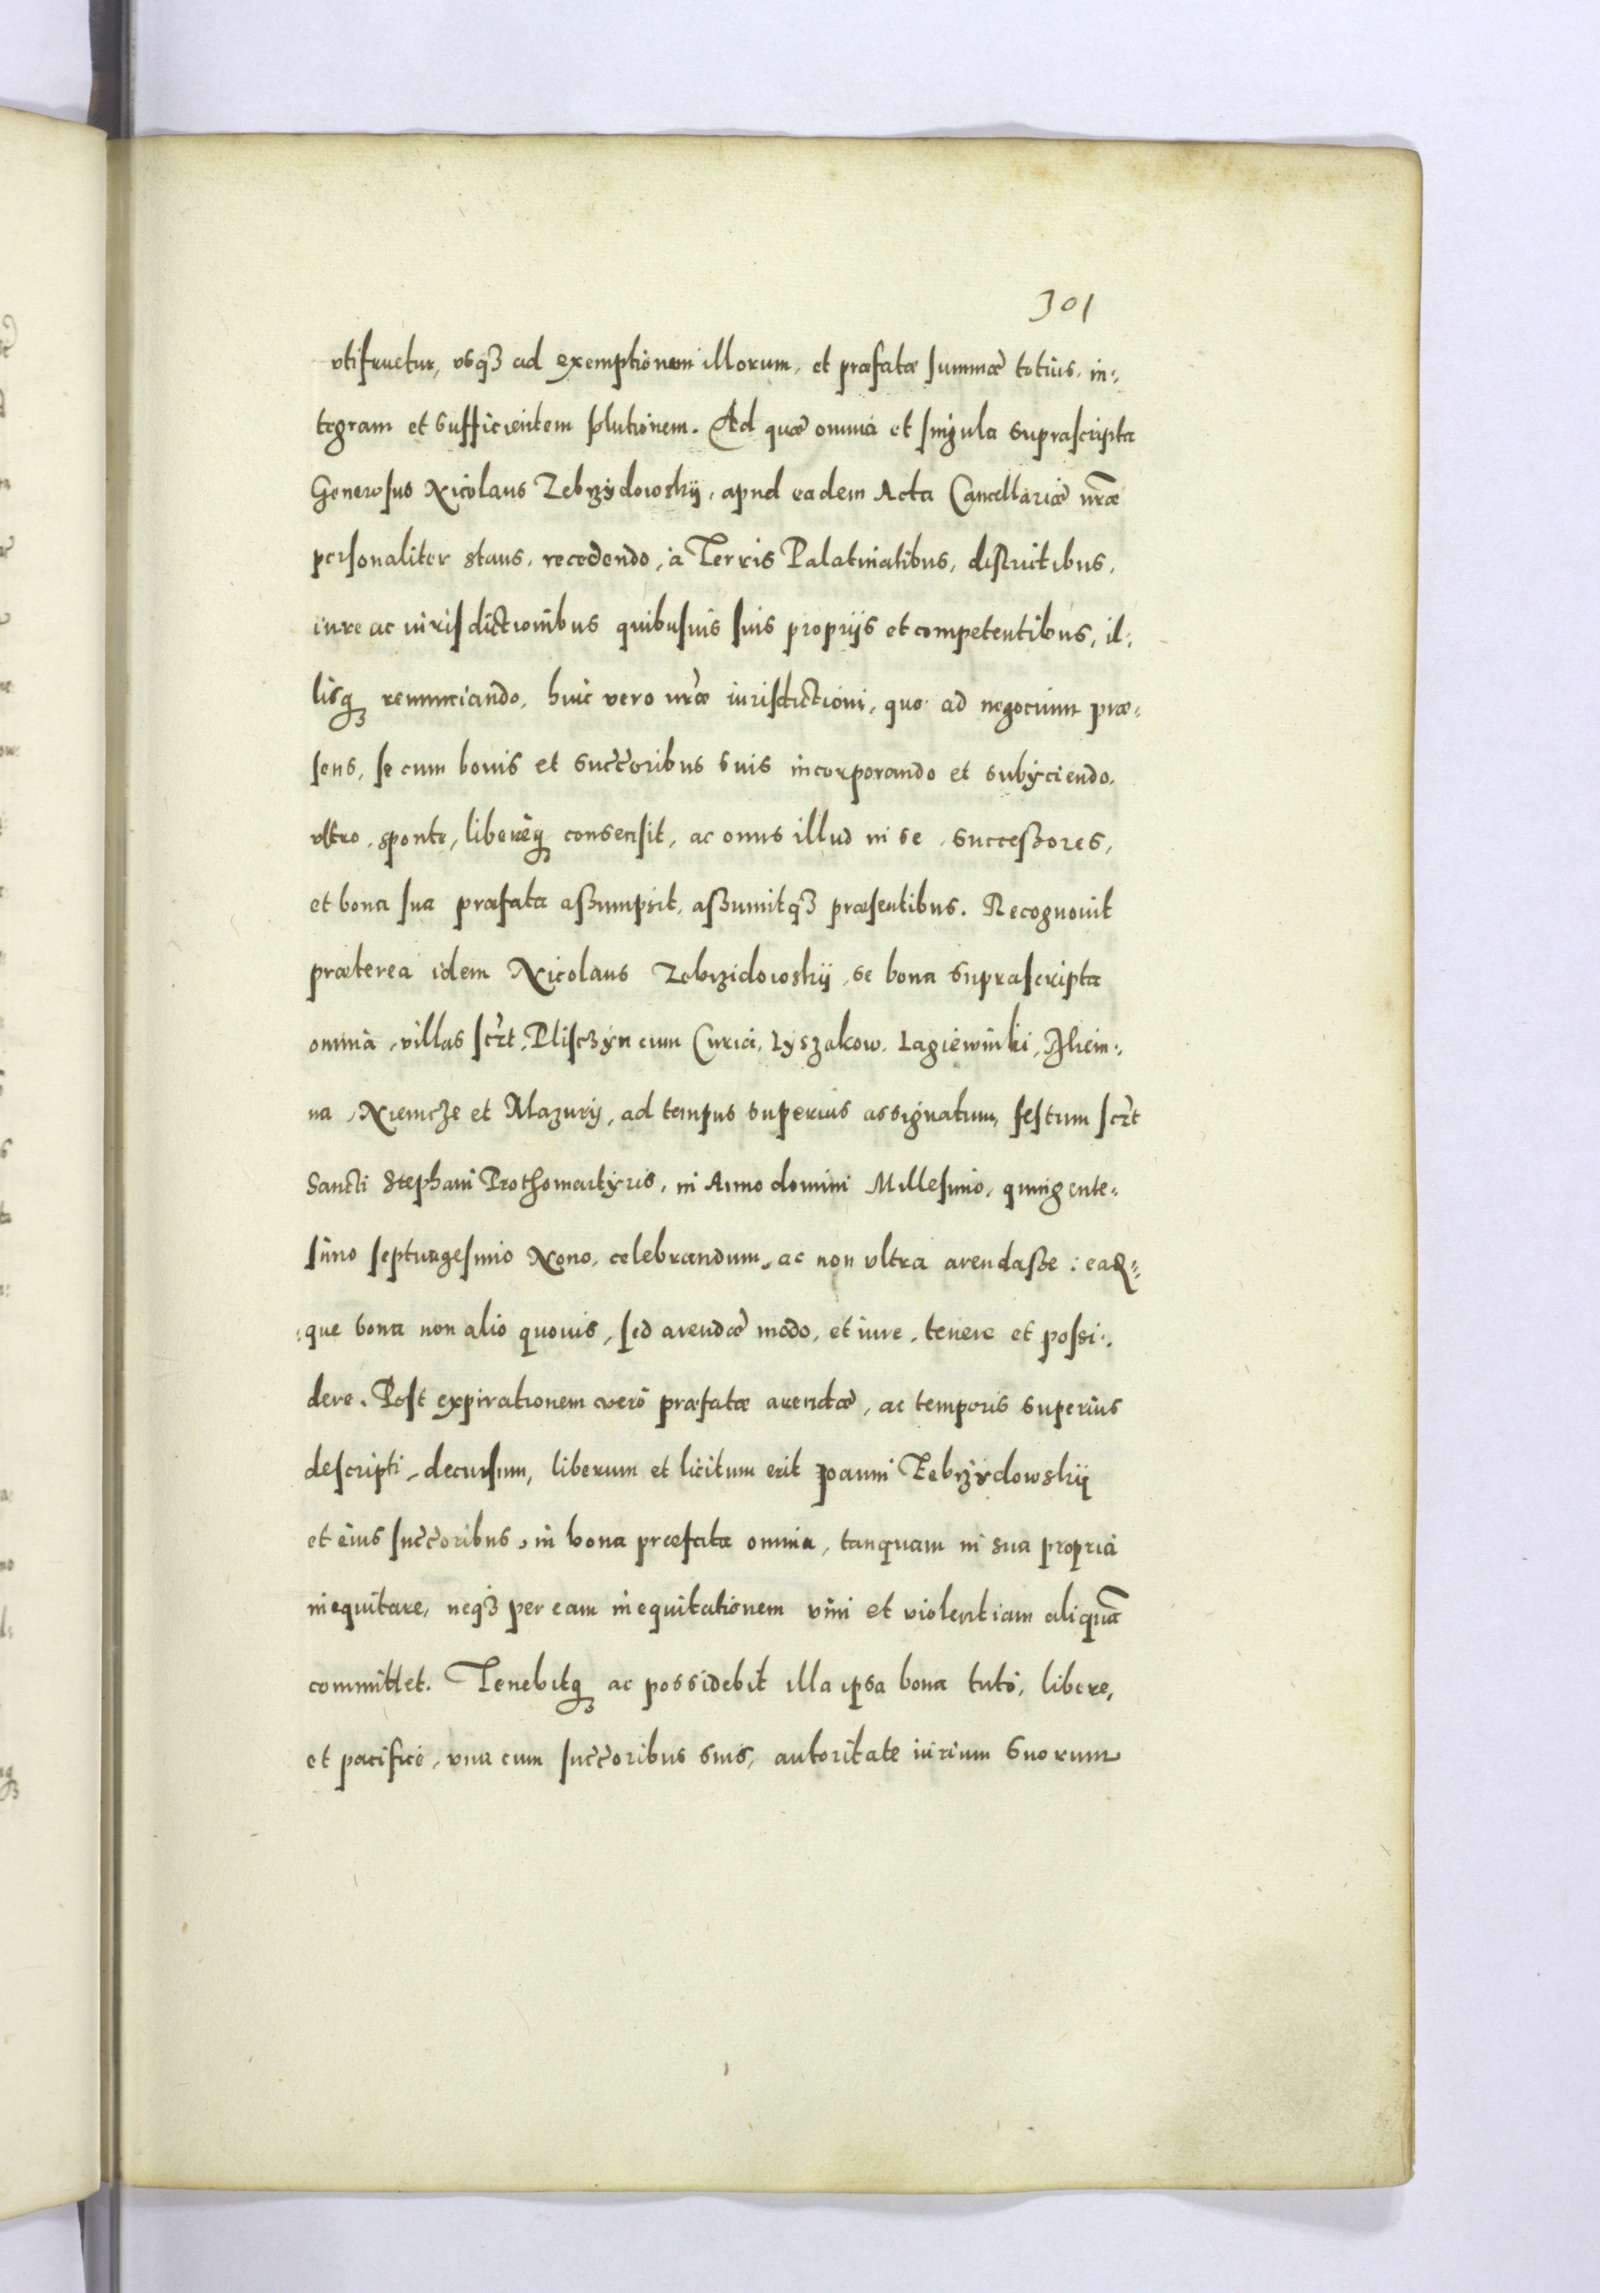 301
vtifruetur, vsqȝ ad exemptionem illorum, et præfatæ summæ totius, in-
tegram et sufficientem solutionem. Ad quæ omnia et singula suprascripta
Generosus Nicolaus Zebrzydowskij, apud eadem Acta Cancellariæ nr̃æ
personaliter stans, recedendo, à Terris Palatinatibus, districtibus,
iure ac iurisdictionibus quibusuis suis proprijs et competentibus, il-
lisqȝ renunciando, huic vero nr̃æ iurisdictioni, quo ad negocium præ-
sens, se cum bonis et succ̃oribus suis incorporando et subijciendo,
vltro, sponte, libereqȝ consensit, ac onus illud in se, successores,
et bona sua præfata assumpsit, assumitqȝ præsentibus. Recognouit
præterea idem Nicolaus Zebrzidowskij, se bona suprascripta
omnia, villas scr̃t, Pliszczyn cum Curia, Lyszakow, Lagiewniki,
na, Niemcze et Mazury, ad tempus superius assignatum, festum scr̃t
Sancti Stephani Prothomartyris, in Anno domini Millesimo, quingente-
simo septuagesimo Nono, celebrandum, ac non vltra arendasse: ea&-
que bona non alio quouis, sed arendæ modo, et iure, tenere et possi-
dere. Post expirationem verò præfatæ arendæ, ac temporis superius
descripti, decursum, liberum et licitum erit Joanni Zebrzydowskij
et eius succ̃oribus, in bona præfata omnia, tanquam in sua propria
inequitare, neqȝ per eam inequitationem vim et violentiam aliquã
committet. Tenebitqȝ ac possidebit illa ipsa bona tutò, libere,
et pacificè, vna cum succ̃oribus suis, autoritate iurium suorum